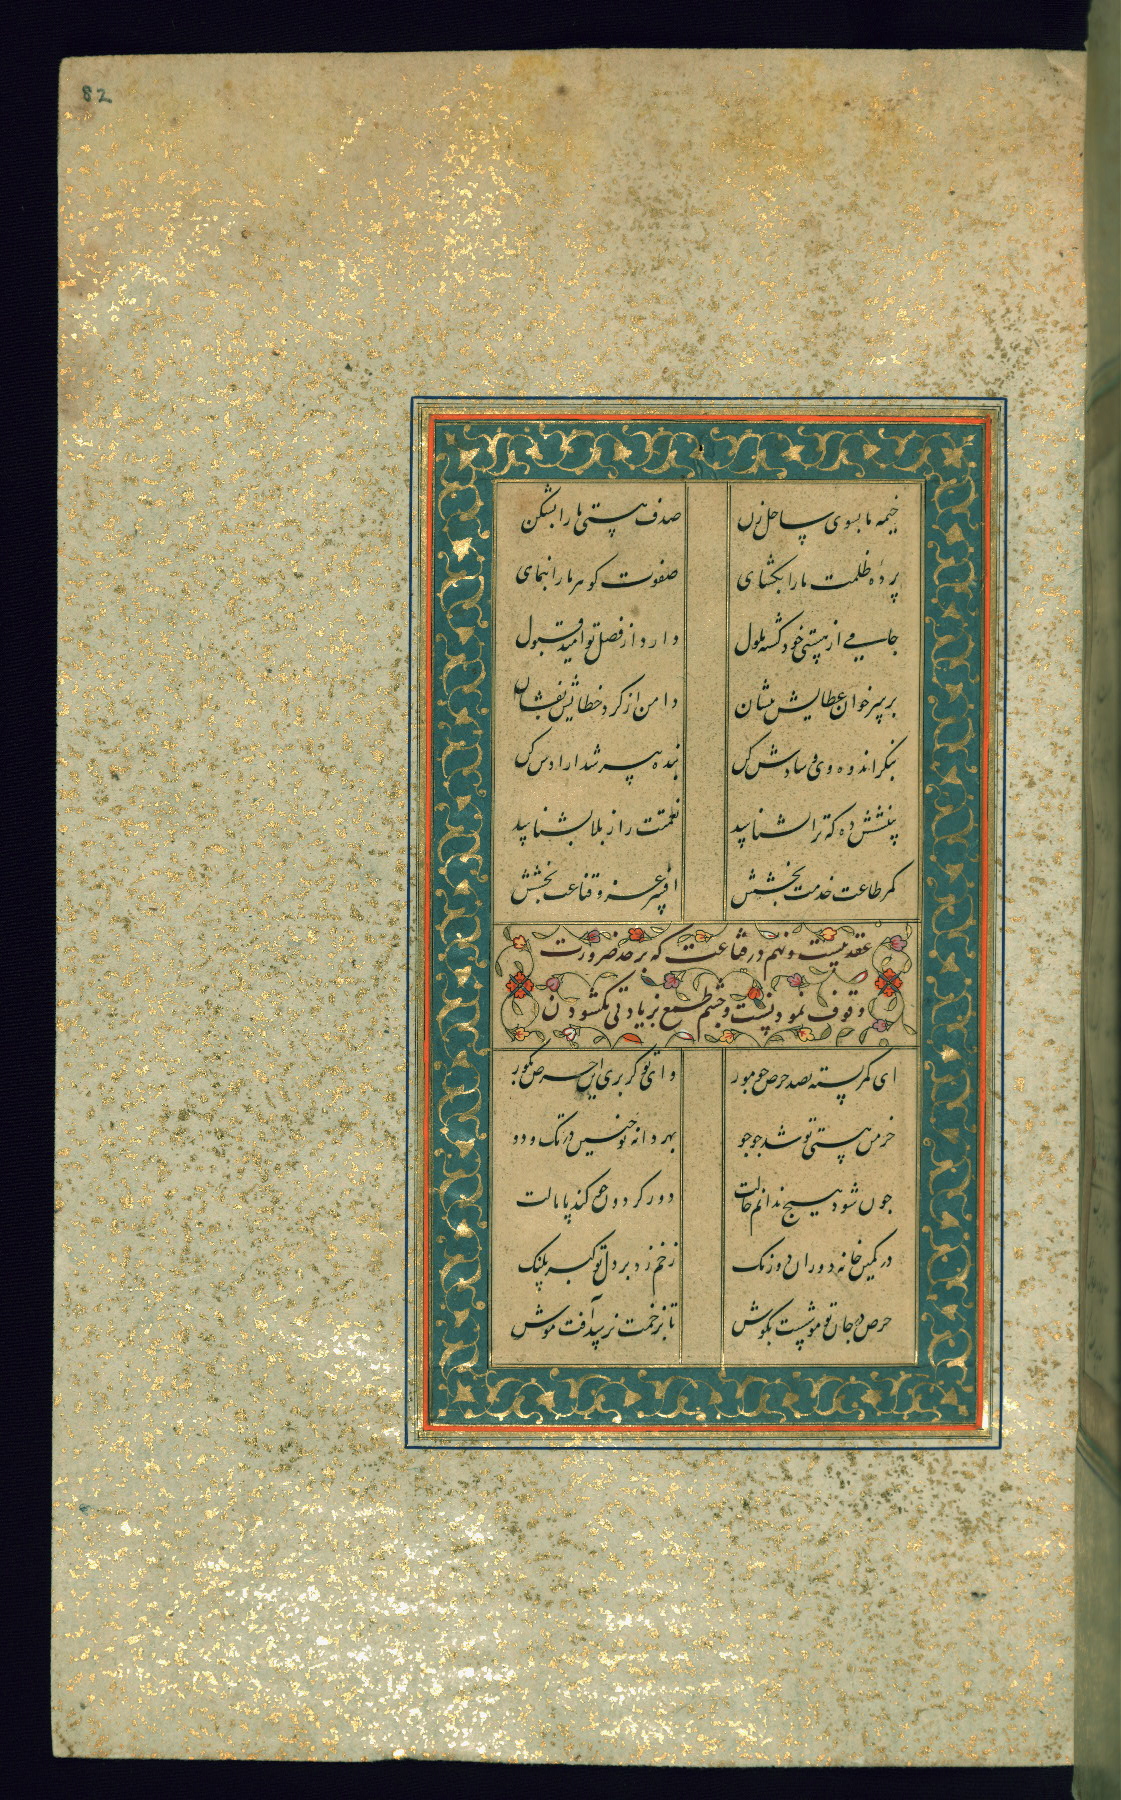 82
خیمه ما بسوی ساحل زن صدف هستی ما را بشکن
پرده ظلمت ما را بکشای صفوت کوهر ما را بنمای
جامی از هستی خود کشته ملول دارد از فضل تو امید قبول
بر سر خوان عطایش بنشان دامن از کرد خطایش بفشان
بنکر اندوه وی و شادش کن بنده پیر شد ازادش کن
بینشش ده که ترا بشناسد نعمتت را ز بلا بشناسد
کمر طاعت خدمت بخشش افسر عز و قناعت بخشش
عقد بیست و نهم در قناعت که بر حد ضرورت
وقوف نمودنست و چشم طمع بزیادتی نکشودن
ای کمر بسته بصد حرص چو مور وای تو کر بری این حرص بکور
خرمن هستی تو شد جو جو بهر دانه تو چنین در تک و دو
چون شود هیچ ندانم حالت دور کردون چو کند پامالت
در کمین خانه دوران دو رنک زخم زد بر دل تو کبر پلنک
حرص در جان تو موشیست بکوش تا بزخمت نرسد آفت موش